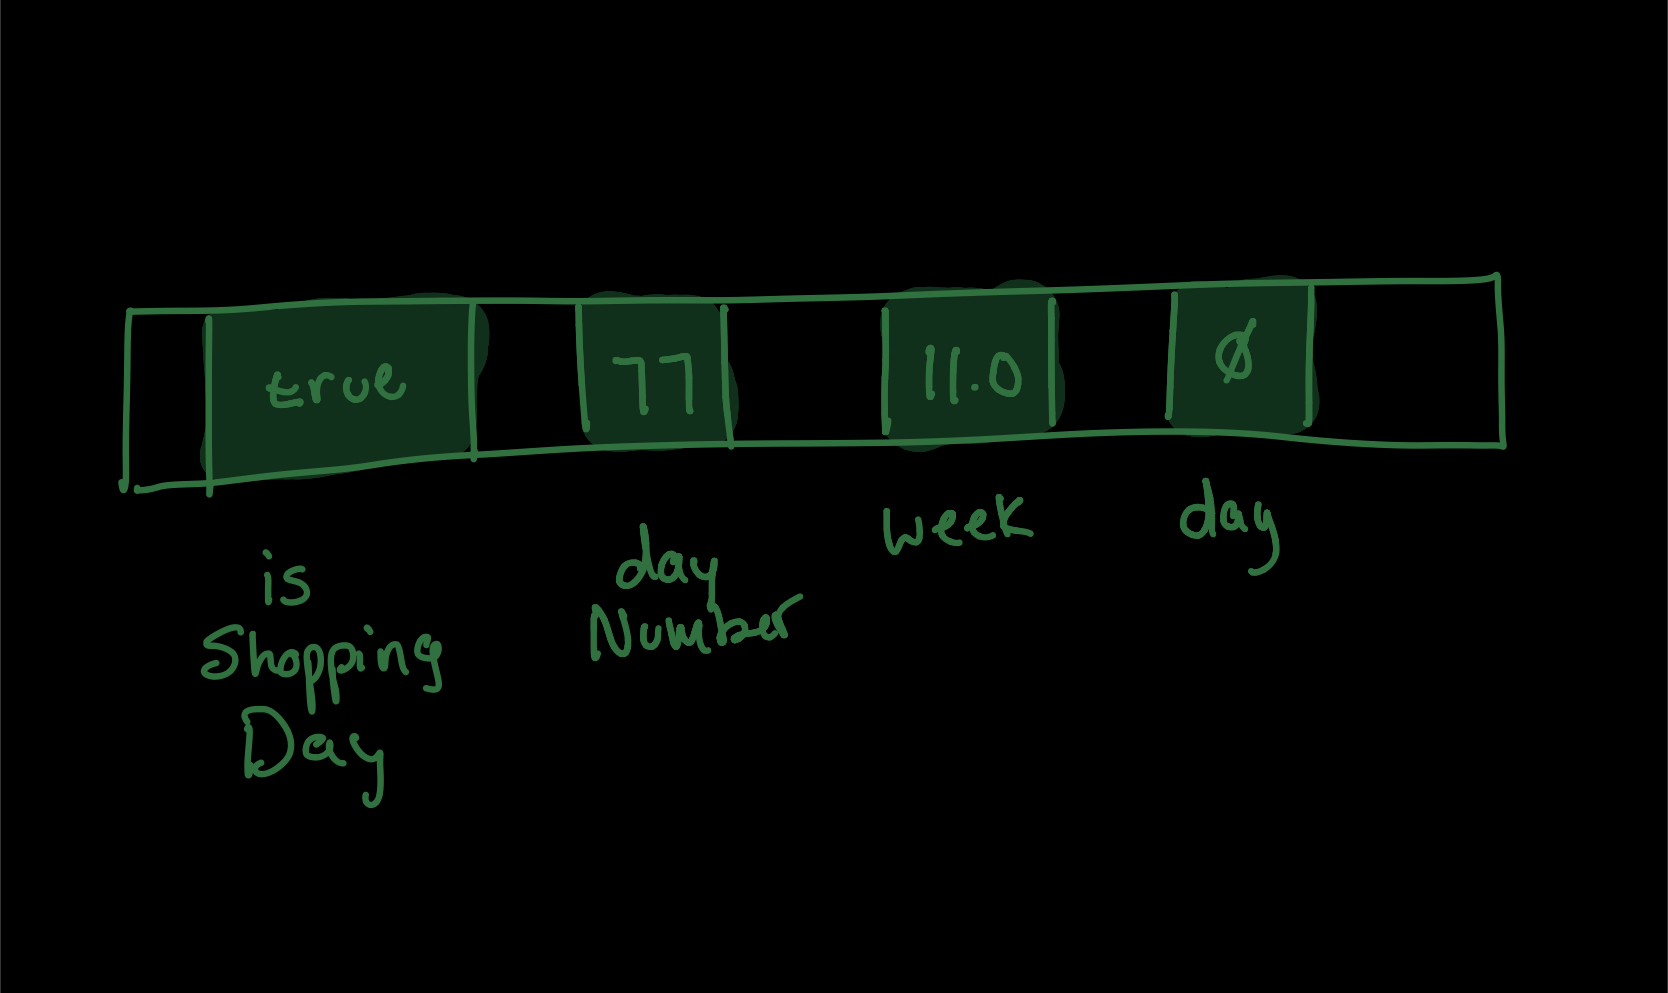 true 77 11.0 Ø
is
Shopping
Day
day
Number
week
day